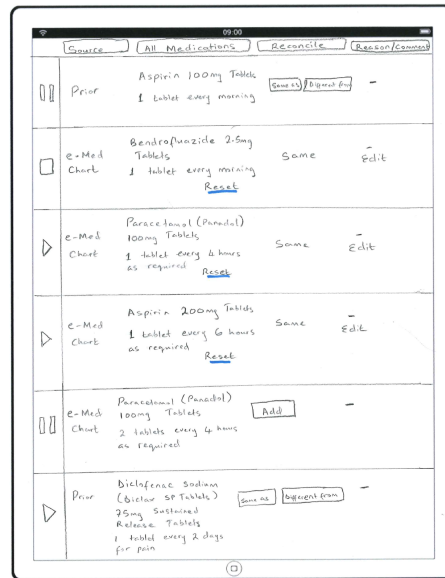 09:00
Source All Medications Reconcile Reason/Comment
Prior
Aspirin 100mg Tablets
1 tablet every morning
Same as Different from
–
e-Med Chart
Bendrofluazide 2.5mg
Tablets
1 tablet every morning
Reset
Same
–
Edit
e-Med Chart
Paracetamol (Panadol)
100mg Tablets
1 tablet every 4 hours
as required Reset
Same
–
Edit
e-Med Chart
Aspirin 200mg Tablets
1 tablet every 6 hours
as required
Reset
Same
–
Edit
e-Med Chart
Paracetamol (Panadol)
100mg Tablets
2 tablets every 4 hours
as required
Add
–
Prior
Diclofenac Sodium
(Diclax SP Tablets)
75mg Sustained
Release Tablets
1 tablet every 2 days
for pain
Same as Different from
–